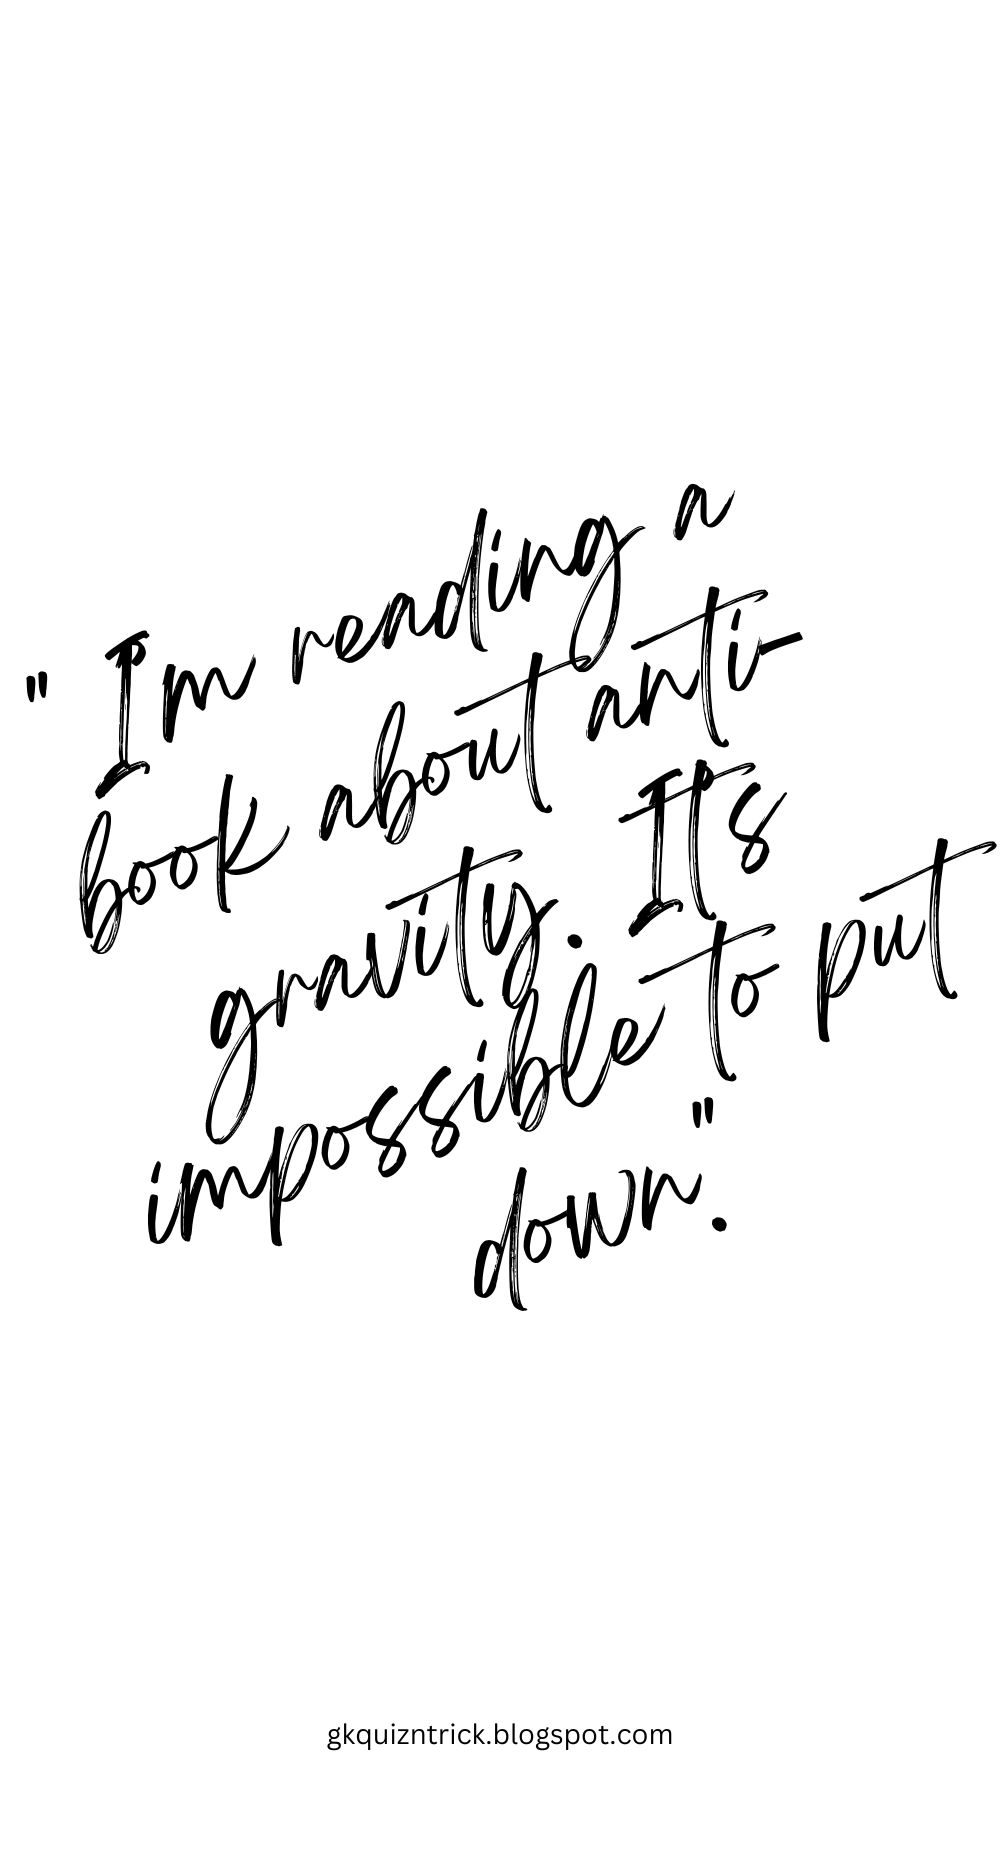 " I'm reading a
book about anti-
gravity. It's
impossible to put
down."
gkquizntrick.blogspot.com